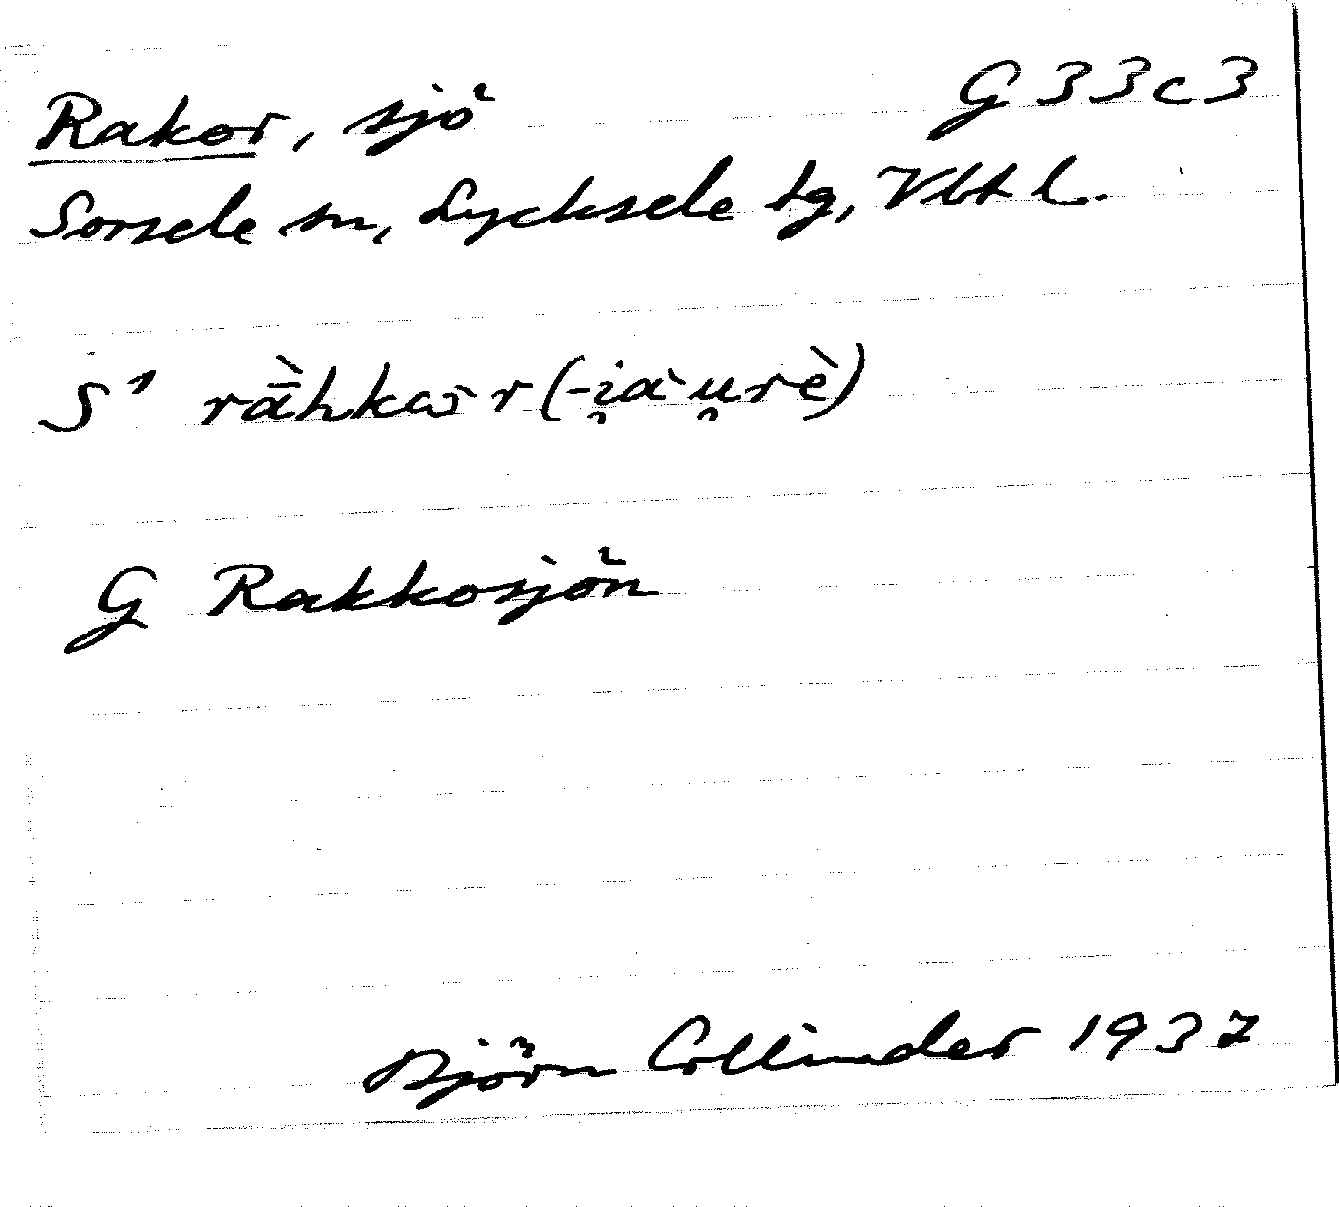 Rakor, sjö G 33 c 3
Sorsele sn, Lycksele tg, Vbt l.
S¹ rā̀hkɷr (-i̯àu̯rè)
G Rakkosjön
Björn Collinder 1937